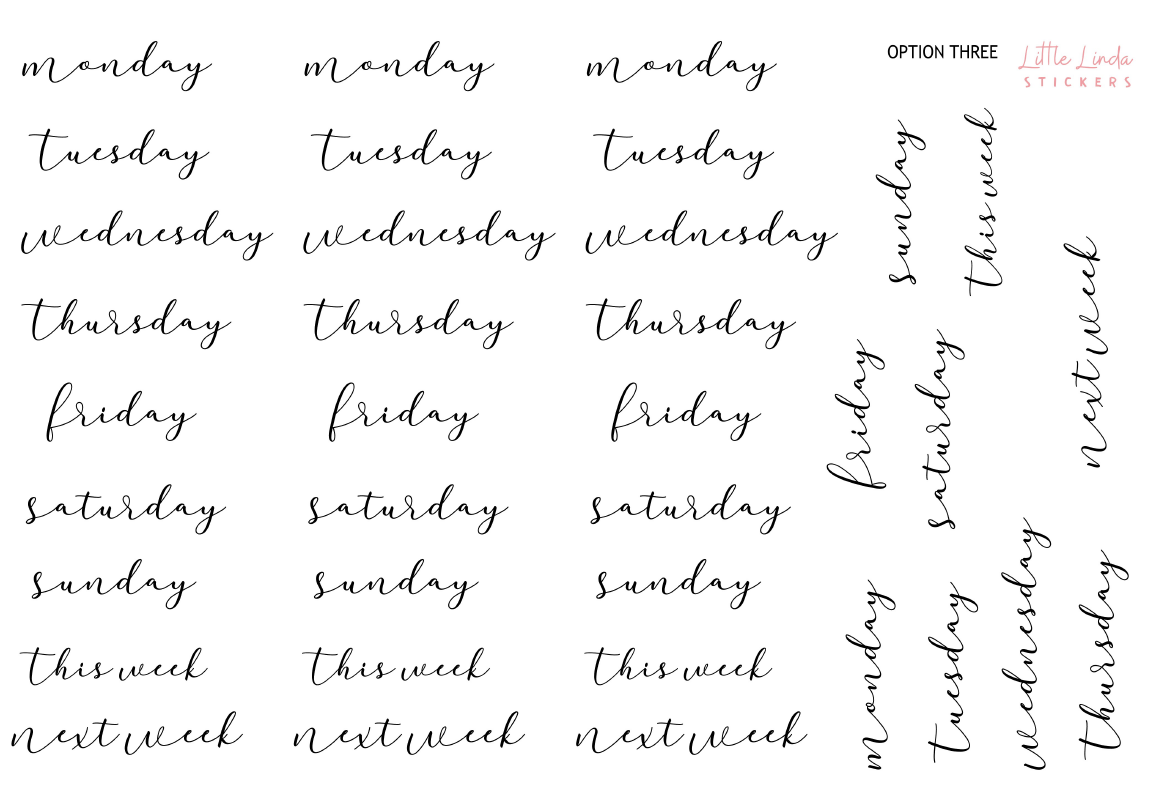 monday monday monday OPTION THREE Little Linda
STICKERS
tuesday tuesday tuesday
wednesday wednesday wednesday
thursday thursday thursday
friday friday friday
saturday saturday saturday
sunday sunday sunday
this week this week this week
next week next week next week
sunday
this week
next week
friday
saturday
monday
tuesday
wednesday
thursday